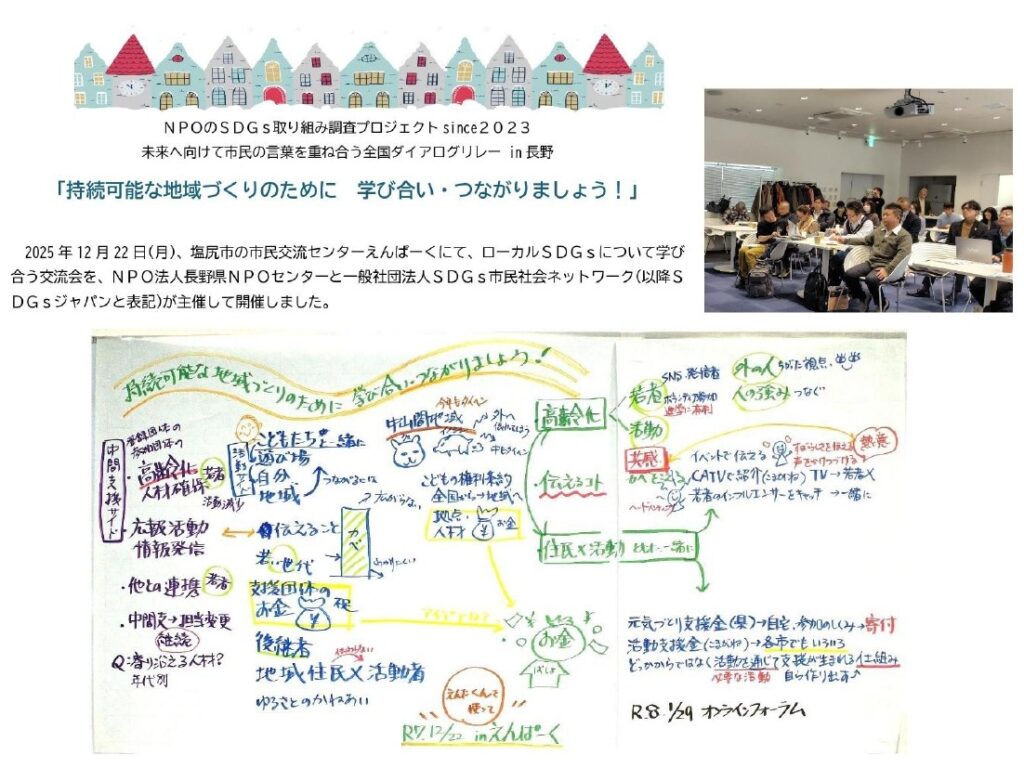 NPOのSDGs取り組み調査プロジェクトsince2023
未来へ向けて市民の言葉を重ね合う全国ダイアログリレー in 長野
「持続可能な地域づくりのために 学び合い・つながりましょう！」
2025年12月22日(月)、塩尻市の市民交流センターえんぱーくにて、ローカルSDGsについて学び
合う交流会を、NPO法人長野県NPOセンターと一般社団法人SDGs市民社会ネットワーク(以降S
DGsジャパンと表記)が主催して開催しました。
持続可能な地域づくりのために 学び合い・つながりましょう！
中間支援サイド
・高齢化
人材確保
若者
活動減少
・広報活動
情報発信
・他との連携
若者
・中間支→担当変更
継続
Q:寄り添える人材?
年代別
活動サイド
こどもたちと一緒に
遊び場
自分
地域
つながるには
伝えること
若い世代
カベ
支援団体の
お金
後継者
地域住民×活動者
中山間地域
こどもの権利条約
全国から→地域へ
拠点・
人材
¥お金
お金
R7.12/22 inえんぱーく
高齢化
若者
SNS・発信者
活動
外の人
ちがった視点
人の強み
つなぐ
共感
熱意
伝えるコト
イベントで伝える
CATVで紹介(こまがね) TV→若者×
若者のインフルエンサーをキャッチ→一緒に
住民×活動 ともに、一緒に
元気づくり支援金(県)→自宅、参加のしくみ→寄付
活動支援金(こまがね)→各市でもいろいろ
どっかからではなく活動を通じて支援が生まれる仕組み
必要な活動
自ら作り出す
R.8.1/29 オンラインフォーラム